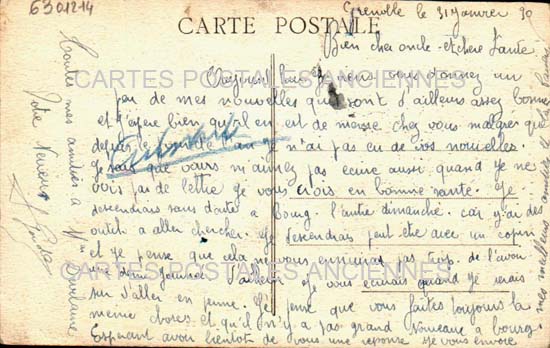 6301214
CARTE POSTALE
Grenoble le 31 Janvier 30
Bien cher oncle et chère Tante
CARTES POSTALES ANCIENNES
Je viens vous donner un
peu de mes nouvelles qui sont d'ailleurs assez bonne
et j'espère bien qu'il en est de même chez vous malgrès que
depuis le jour de l'an je n'ai pas eu de vos nouvelles.
Je sais que vous m'aimez pas écrire aussi quand je ne
vois pas de lettre je vous crois en bonne santé. Je
descendrais sans doute à Bourg l'autre dimanche. car j'ai des
outils a aller chercher. Je descendrais peut être avec un copain
et je pense que cela ne vous ennuiras pas trop. de l'avoir
une demi journée. D'ailleurs je vous écrirais quand je serais
sur d'aller en perme. Je pense que vous faites toujours la
même choses et qu'il n'y a pas grand Nouveau a bourg.
Esperant avoir bientôt de vous une réponse je vous envoie
mes meilleurs
CARTES POSTALES ANCIENNES
Toutes mes amitiés à Mme
Votre Neveu